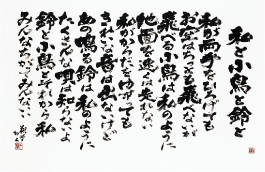 私と小鳥と鈴と
私が両手をひろげても
お空はちっとも飛べないが
飛べる小鳥は私のように
地面を速く走れない
私がからだをゆすっても
きれいな音は出ないけど
あの鳴る鈴は私のように
たくさんな唄は知らないよ
鈴と小鳥とそれから私
みんなちがってみんないい